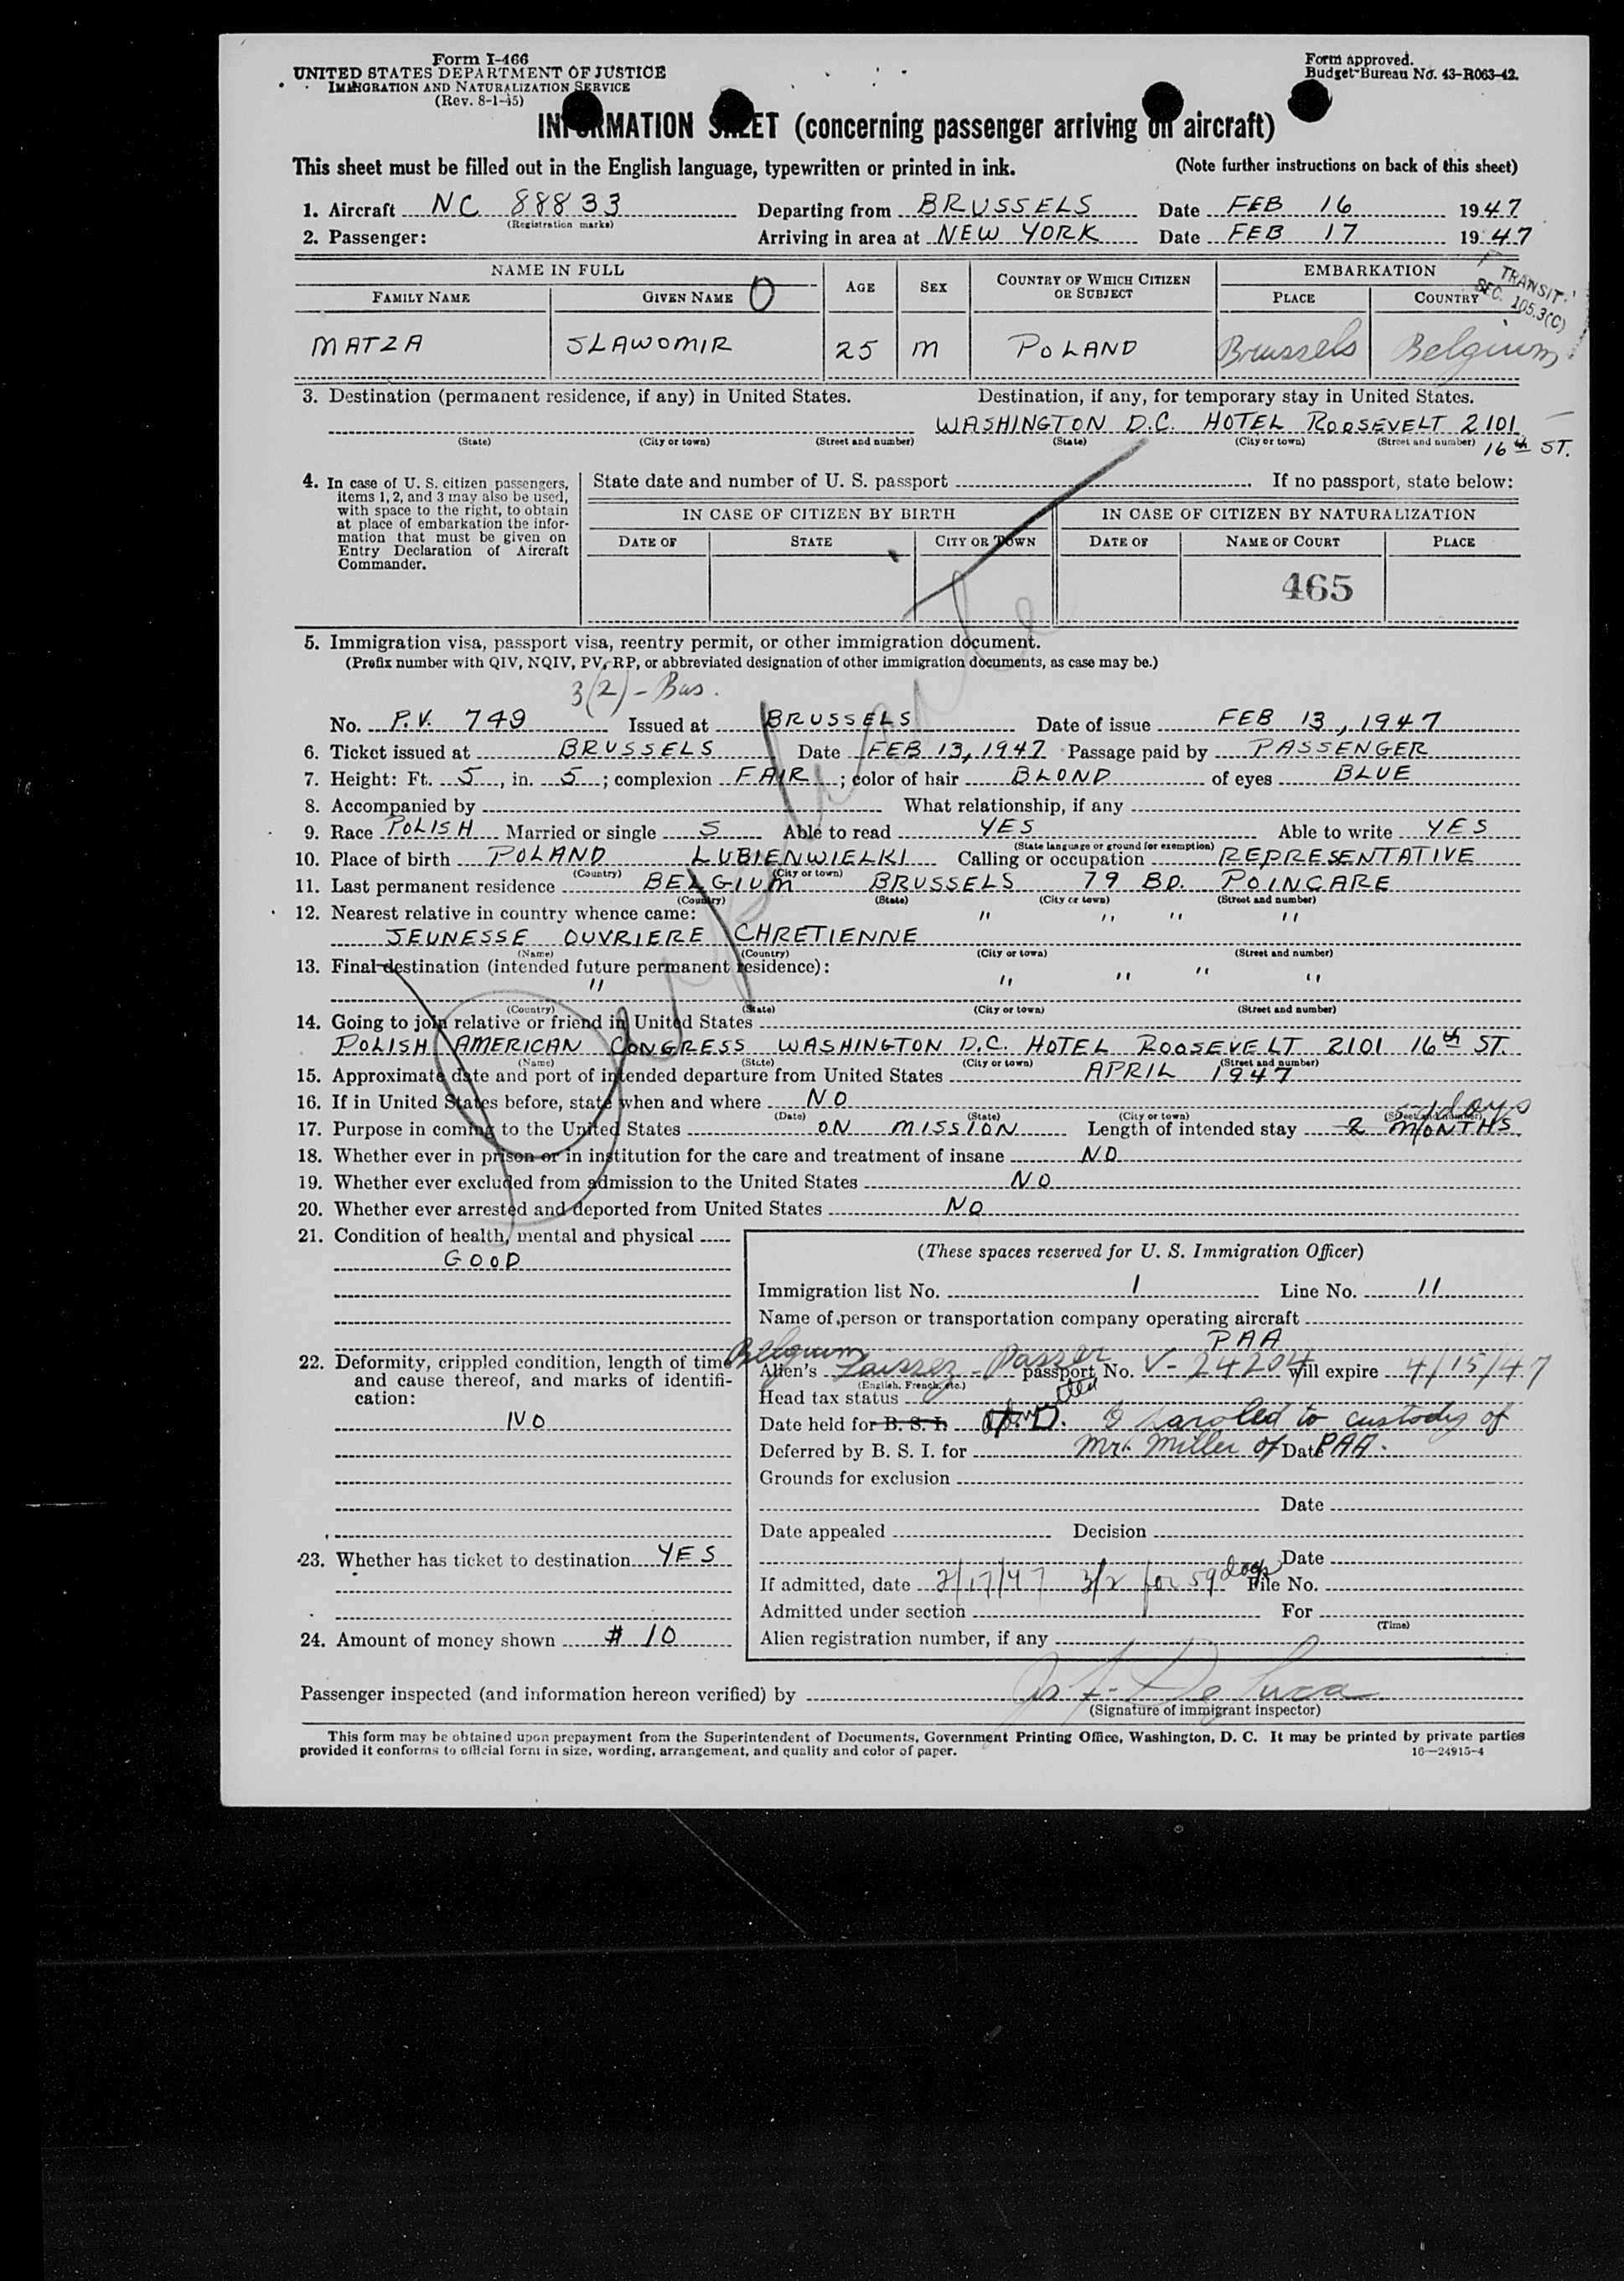 Form I-466
UNITED STATES DEPARTMENT OF JUSTICE
IMMIGRATION AND NATURALIZATION SERVICE
(Rev. 8-1-45)
Form approved.
Budget Bureau No. 43-R063-42.
INFORMATION SHEET (concerning passenger arriving on aircraft)
This sheet must be filled out in the English language, typewritten or printed in ink. (Note further instructions on back of this sheet)
1. Aircraft NC 88833 Departing from BRUSSELS Date FEB 16 1947
(Registration marks)
2. Passenger: Arriving in area at NEW YORK Date FEB 17 1947
TRANSIT
SEC. 105.3(C)
NAME IN FULL AGE SEX COUNTRY OF WHICH CITIZEN OR SUBJECT EMBARKATION
FAMILY NAME GIVEN NAME PLACE COUNTRY
MATZA SLAWOMIR 25 M POLAND Brussels Belgium
3. Destination (permanent residence, if any) in United States. Destination, if any, for temporary stay in United States.
WASHINGTON D.C. HOTEL ROOSEVELT 2101
16th ST.
(State) (City or town) (Street and number) (State) (City or town) (Street and number)
4. In case of U. S. citizen passengers, items 1, 2, and 3 may also be used, with space to the right, to obtain at place of embarkation the information that must be given on Entry Declaration of Aircraft Commander.
State date and number of U. S. passport If no passport, state below:
IN CASE OF CITIZEN BY BIRTH IN CASE OF CITIZEN BY NATURALIZATION
DATE OF STATE CITY OR TOWN DATE OF NAME OF COURT PLACE
465
5. Immigration visa, passport visa, reentry permit, or other immigration document.
(Prefix number with QIV, NQIV, PV, RP, or abbreviated designation of other immigration documents, as case may be.)
3(2) - Bus.
No. P.V. 749 Issued at BRUSSELS Date of issue FEB 13, 1947
6. Ticket issued at BRUSSELS Date FEB 13, 1947 Passage paid by PASSENGER
7. Height: Ft. 5, in. 5; complexion FAIR; color of hair BLOND of eyes BLUE
8. Accompanied by What relationship, if any
9. Race POLISH Married or single S Able to read YES Able to write YES
(State language or ground for exemption)
10. Place of birth POLAND LUBIENWIELKI Calling or occupation REPRESENTATIVE
(Country) (City or town)
11. Last permanent residence BELGIUM BRUSSELS 79 BD. POINCARE
(Country) (State) (City or town) (Street and number)
12. Nearest relative in country whence came: " " " "
JEUNESSE OUVRIERE CHRETIENNE
(Name) (Country) (City or town) (Street and number)
13. Final destination (intended future permanent residence):
" " " " "
(Country) (State) (City or town) (Street and number)
14. Going to join relative or friend in United States
POLISH AMERICAN CONGRESS WASHINGTON D.C. HOTEL ROOSEVELT 2101 16th ST.
(Name) (State) (City or town) (Street and number)
15. Approximate date and port of intended departure from United States APRIL 1947
16. If in United States before, state when and where NO
(Date) (State) (City or town) (Street and number)
59 days
17. Purpose in coming to the United States ON MISSION Length of intended stay 2 MONTHS
18. Whether ever in prison or in institution for the care and treatment of insane NO
19. Whether ever excluded from admission to the United States NO
20. Whether ever arrested and deported from United States NO
Duplicate
21. Condition of health, mental and physical
GOOD
22. Deformity, crippled condition, length of time and cause thereof, and marks of identification:
NO
23. Whether has ticket to destination YES
24. Amount of money shown $ 10
(These spaces reserved for U. S. Immigration Officer)
Immigration list No. 1 Line No. 11
Name of person or transportation company operating aircraft
PAA
Belgium
Alien's Laissez-Passer passport No. V-24204 will expire 4/15/47
(English, French, etc.)
Head tax status
Date held for B. S. I. paroled to custody of
Deferred by B. S. I. for Mr. Miller of PAA. Date
Grounds for exclusion
Date
Date appealed Decision
Date
If admitted, date 2/17/47 3/2 for 59 days File No.
Admitted under section For
(Time)
Alien registration number, if any
Passenger inspected (and information hereon verified) by De Luca
(Signature of immigrant inspector)
This form may be obtained upon prepayment from the Superintendent of Documents, Government Printing Office, Washington, D. C. It may be printed by private parties
provided it conforms to official form in size, wording, arrangement, and quality and color of paper. 16—24915-4